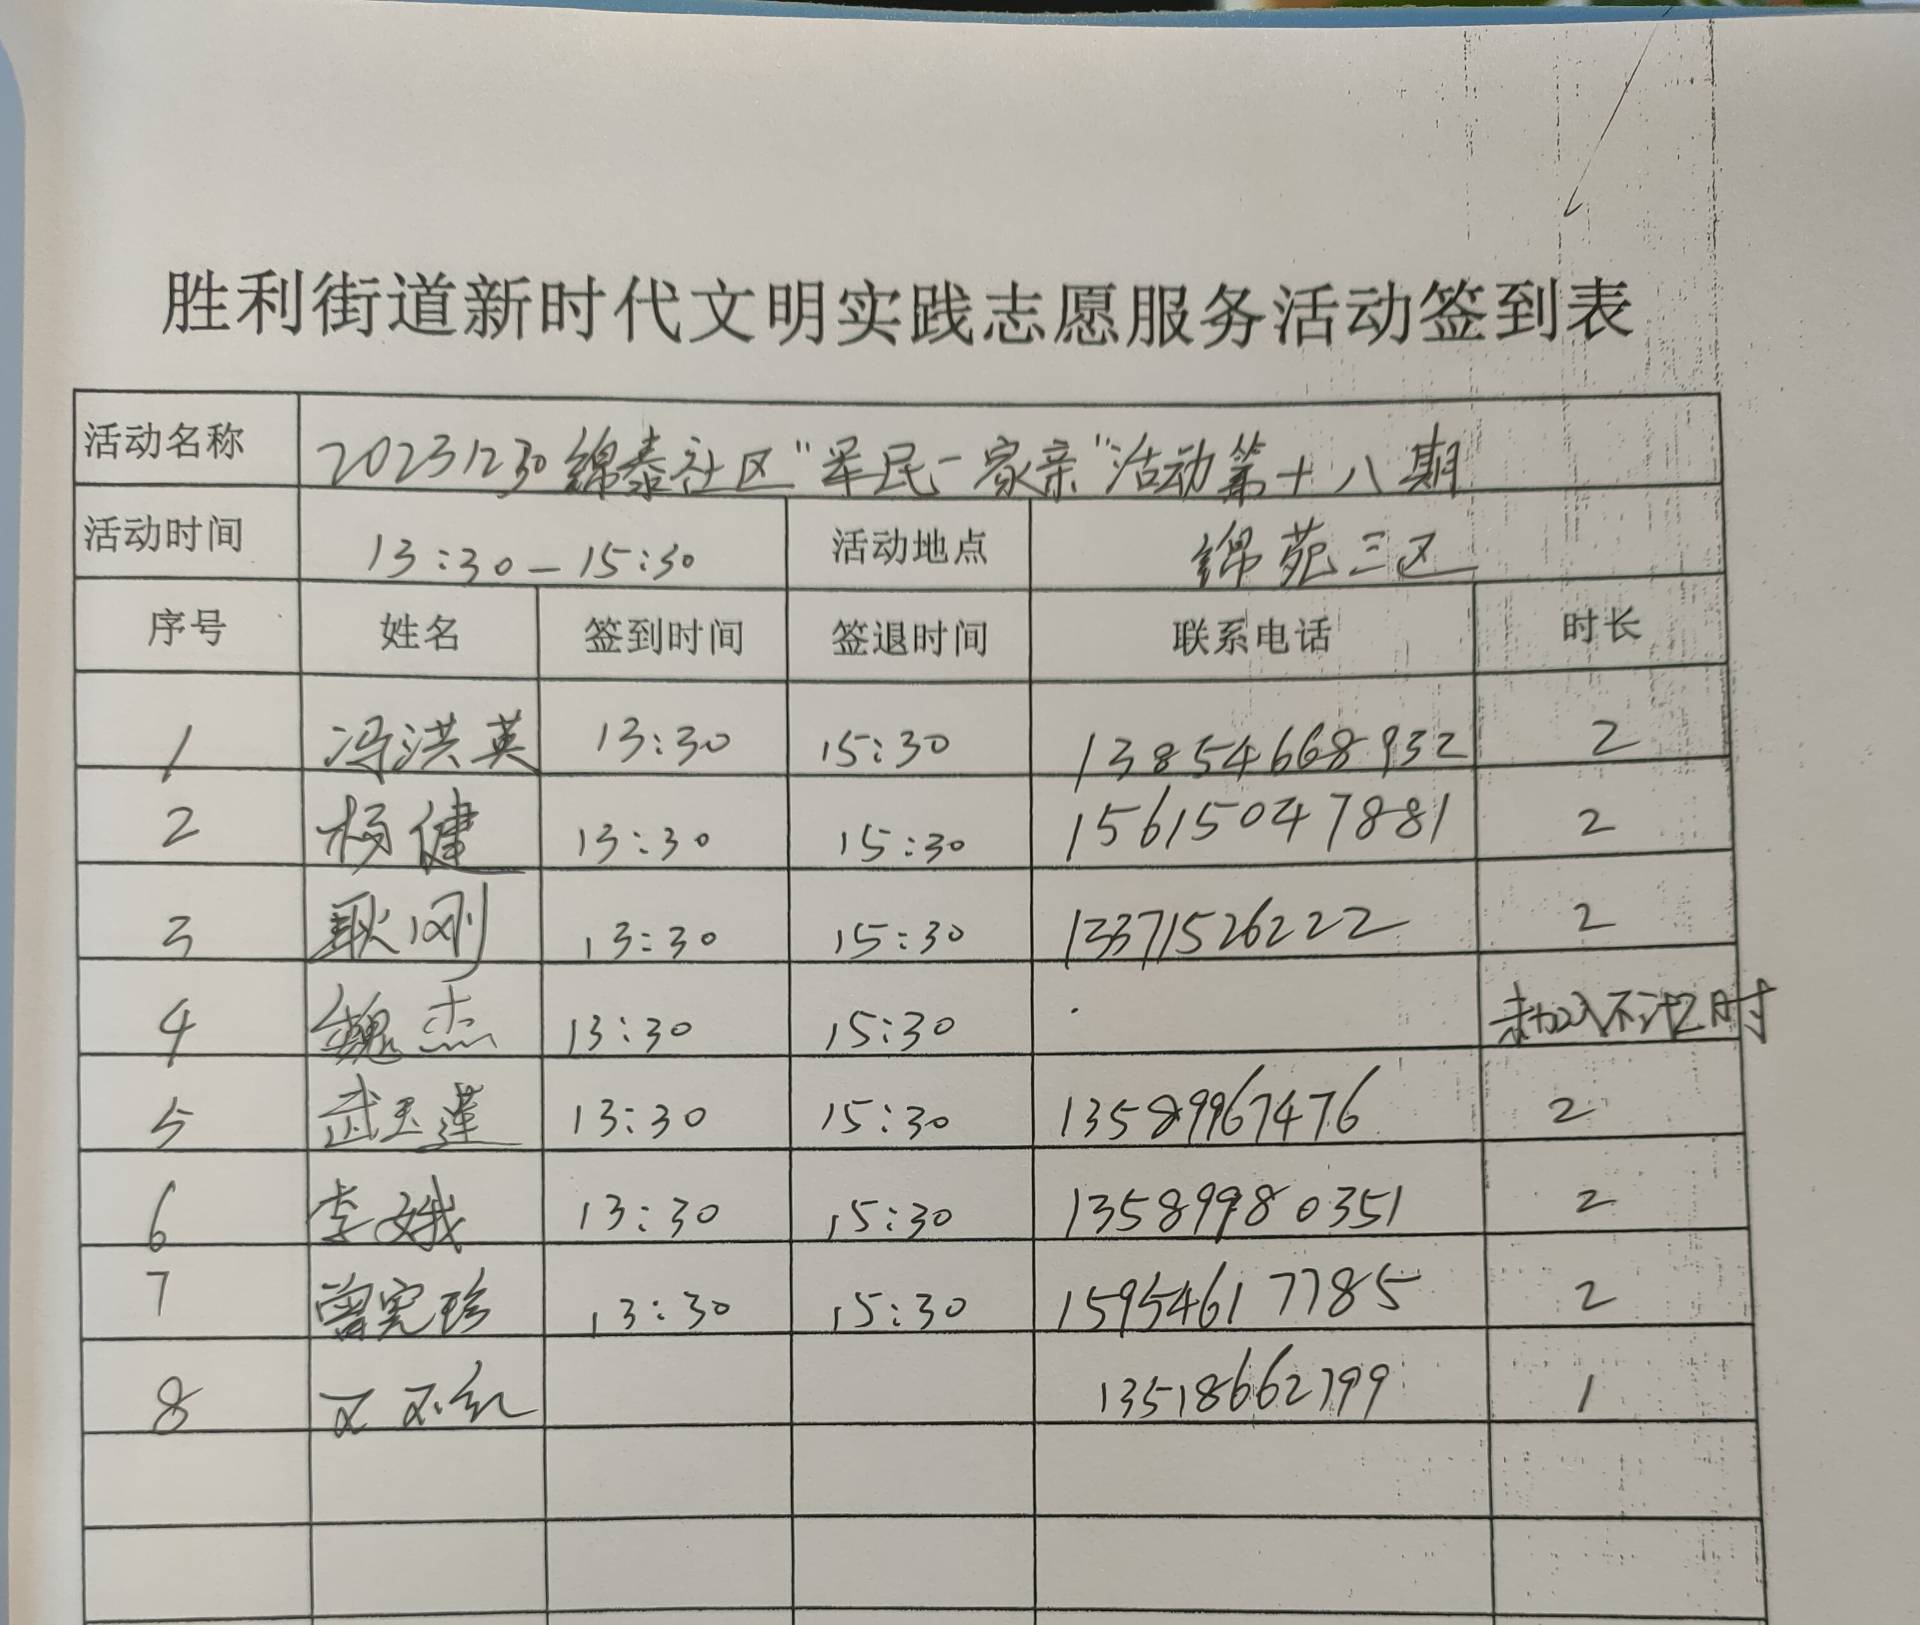 胜利街道新时代文明实践志愿服务活动签到表
活动名称 20231230锦泰社区"军民一家亲"活动第十八期
活动时间 13:30—15:30 活动地点 锦苑三区
序号 姓名 签到时间 签退时间 联系电话 时长
1 冯洪英 13:30 15:30 13854668932 2
2 杨健 13:30 15:30 15615047881 2
3 耿刚 13:30 15:30 13371526222 2
4 魏杰 13:30 15:30 未加入不计时
5 武玉莲 13:30 15:30 13589967476 2
6 李娥 13:30 15:30 13589980351 2
7 曾宪珍 13:30 15:30 15954617785 2
8 13518662799 1